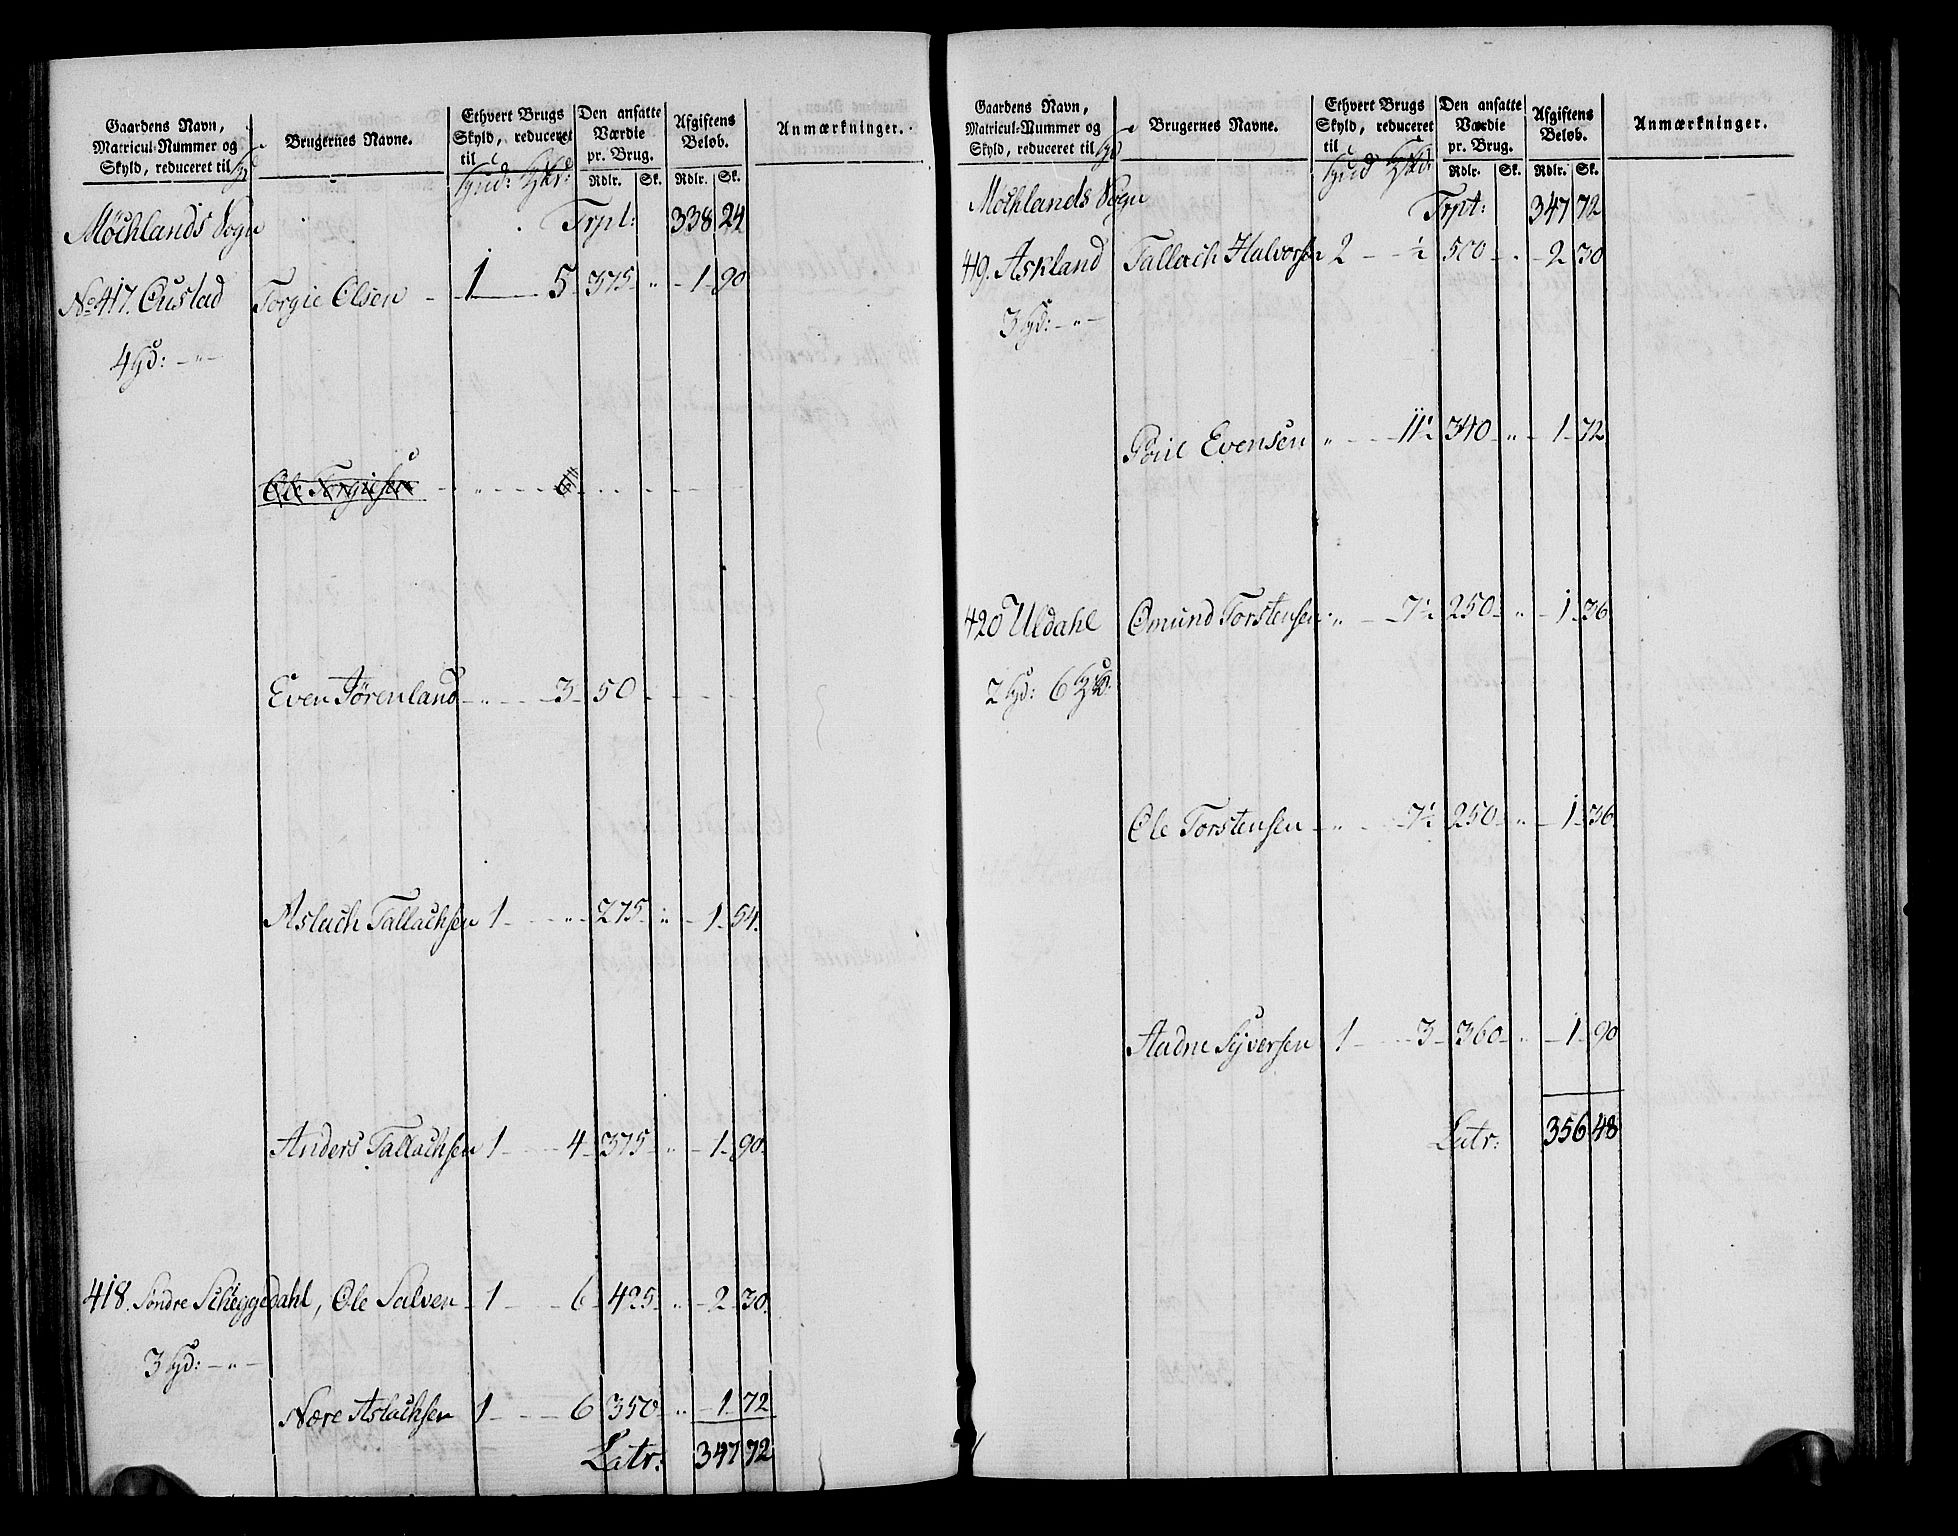 Gaardens Navn,
Matricul-Nummer og
Skyld, reduceret til
Brugernes Navne.
Ethvert Brugs
Skyld, reduceret
til
Den ansatte
Værdie
pr. Brug.
Rdlr. Sk.
Afgiftens
Beløb.
Rdlr. Sk.
Anmærkninger.
Möchlands Sogn Trpt: 338 24
No 417. Oustad Torgie Olsen 1 5 375 " 1 90
4 hd: - " -
Ole Torgiesen " 6
Even Törenland " 3 50
Aslach Tallachsen 1 " 275 " 1 54.
Anders Tallachsen 1 4 375 " 1 90.
418. Söndre Scheggedahl, Ole Salven 1 6 425 " 2 30.
3 hd: - " -
Nere Aslachsen 1 6 350 " 1 72
Latr: 347 72
Gaardens Navn,
Matricul-Nummer og
Skyld, reduceret til
Brugernes Navne.
Ethvert Brugs
Skyld, reduceret
til
Den ansatte
Værdie
pr. Brug.
Rdlr. Sk.
Afgiftens
Beløb.
Rdlr. Sk.
Anmærkninger.
Möchlands Sogn Trpt: 347 72
419. Askland Tallach Halvorsen 2 ½ 500 " 2 30
3 hd: - " -
Poul Evensen " 11½ 340 " 1 72
420 Uldahl Omund Torstensen " 7½ 250 " 1 36
2 hd: 6
Ole Torstensen " 7½ 250 " 1 36
Aadne Syversen 1 3 360 " 1 90
Latr: 356 48